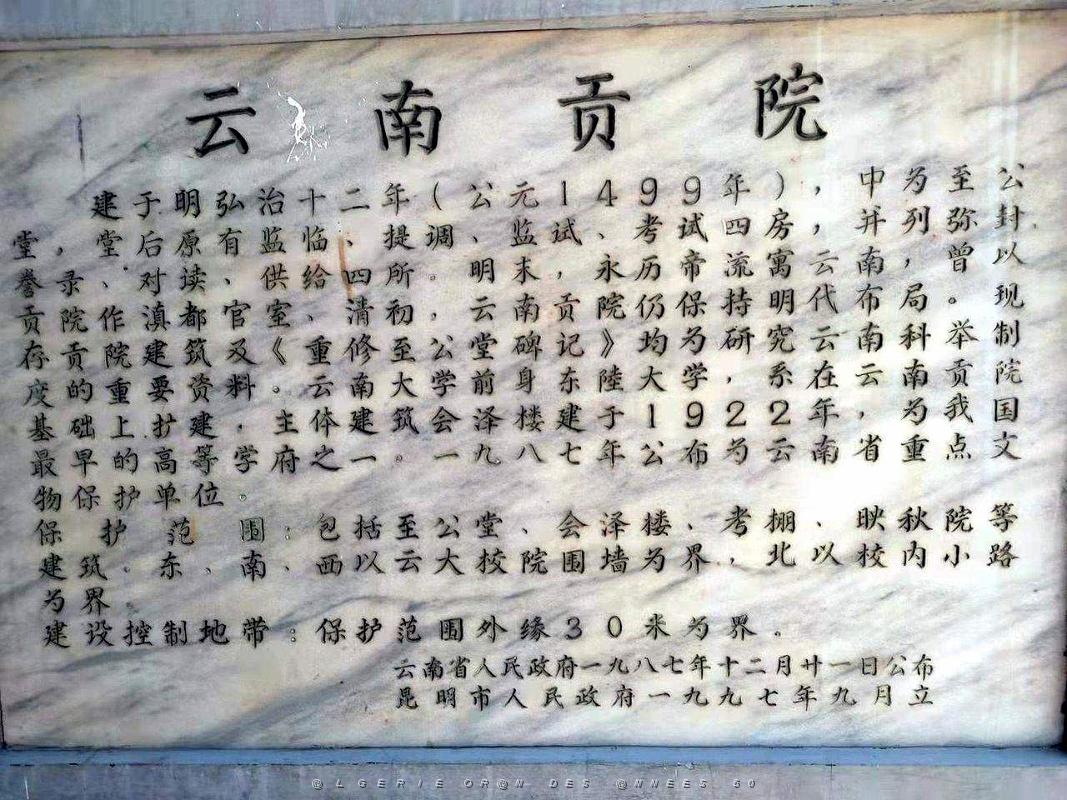 云南贡院
建于明弘治十二年(公元1499年),中为至公
堂,堂后原有监临、提调、监试、考试四房,并列弥封
誊录、对读、供给四所。明末,永历帝流寓云南,曾以
贡院作滇都官室、清初,云南贡院仍保持明代布局。现
存贡院建筑及《重修至公堂碑记》均为研究云南科举制
度的重要资料。云南大学前身东陸大学,系在云南贡院
基础上扩建,主体建筑会泽楼建于1922年,为我国
最早的高等学府之一。一九八七年公布为云南省重点文
物保护单位。
保护范围:包括至公堂、会泽楼、考棚、映秋院等
建筑。东、南、西以云大校院围墙为界,北以校内小路
为界
建设控制地带:保护范围外缘30米为界。
云南省人民政府一九八七年十二月廿一日公布
昆明市人民政府一九九七年九月立
@LGERIE OR@N DES @NNEES 60